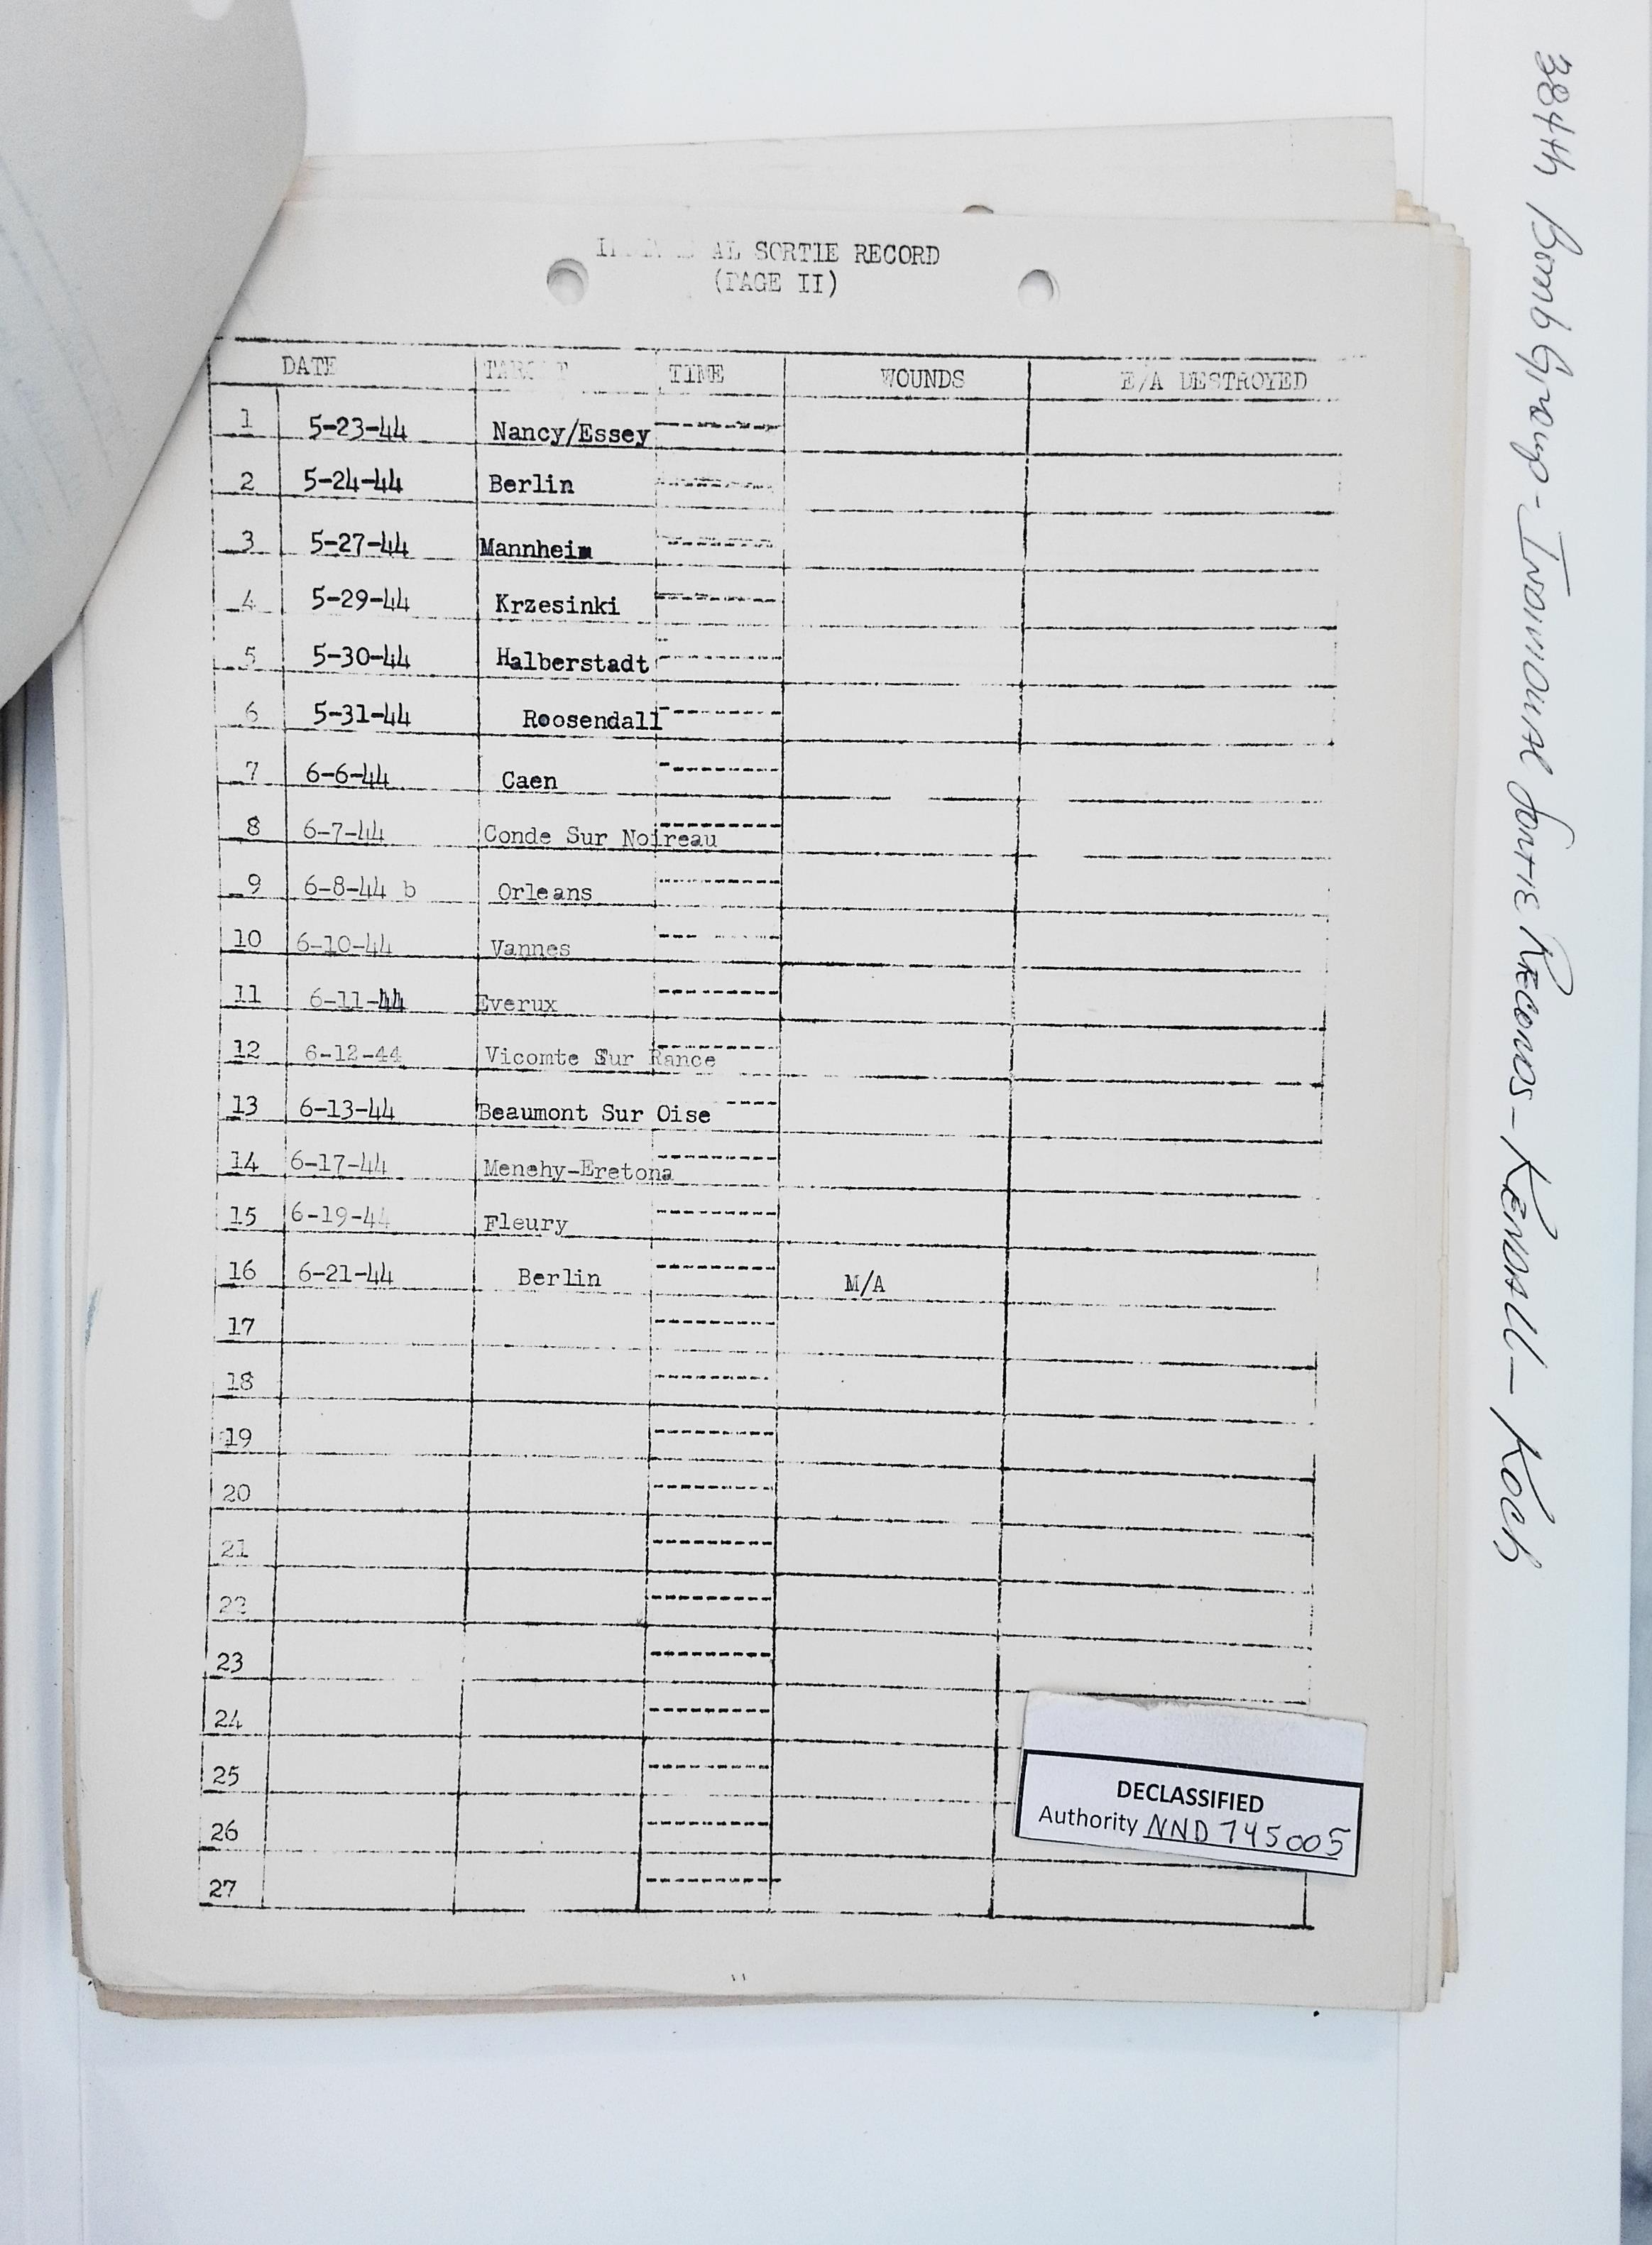 SORTIE RECORD
(PAGE II)
DATE TARGET TIME WOUNDS E/A DESTROYED
1 5-23-44 Nancy/Essey ------
2 5-24-44 Berlin ------
3 5-27-44 Mannheim ------
4 5-29-44 Krzesinki ------
5 5-30-44 Halberstadt ------
6 5-31-44 Roosendall ------
7 6-6-44 Caen ------
8 6-7-44 Conde Sur Noireau ------
9 6-8-44 b Orleans ------
10 6-10-44 Vannes ------
11 6-11-44 Everux ------
12 6-12-44 Vicomte Sur Rance ------
13 6-13-44 Beaumont Sur Oise ----
14 6-17-44 ------
15 6-19-44 Fleury ------
16 6-21-44 Berlin ------ M/A
17 ------
18 ------
19 ------
20 ------
21 ------
22 ------
23 ------
24 ------
25 ------
26 ------
27 ------
DECLASSIFIED
Authority NND 745005
384th Bomb Group - Individual Sortie Records - Kendall - Koch